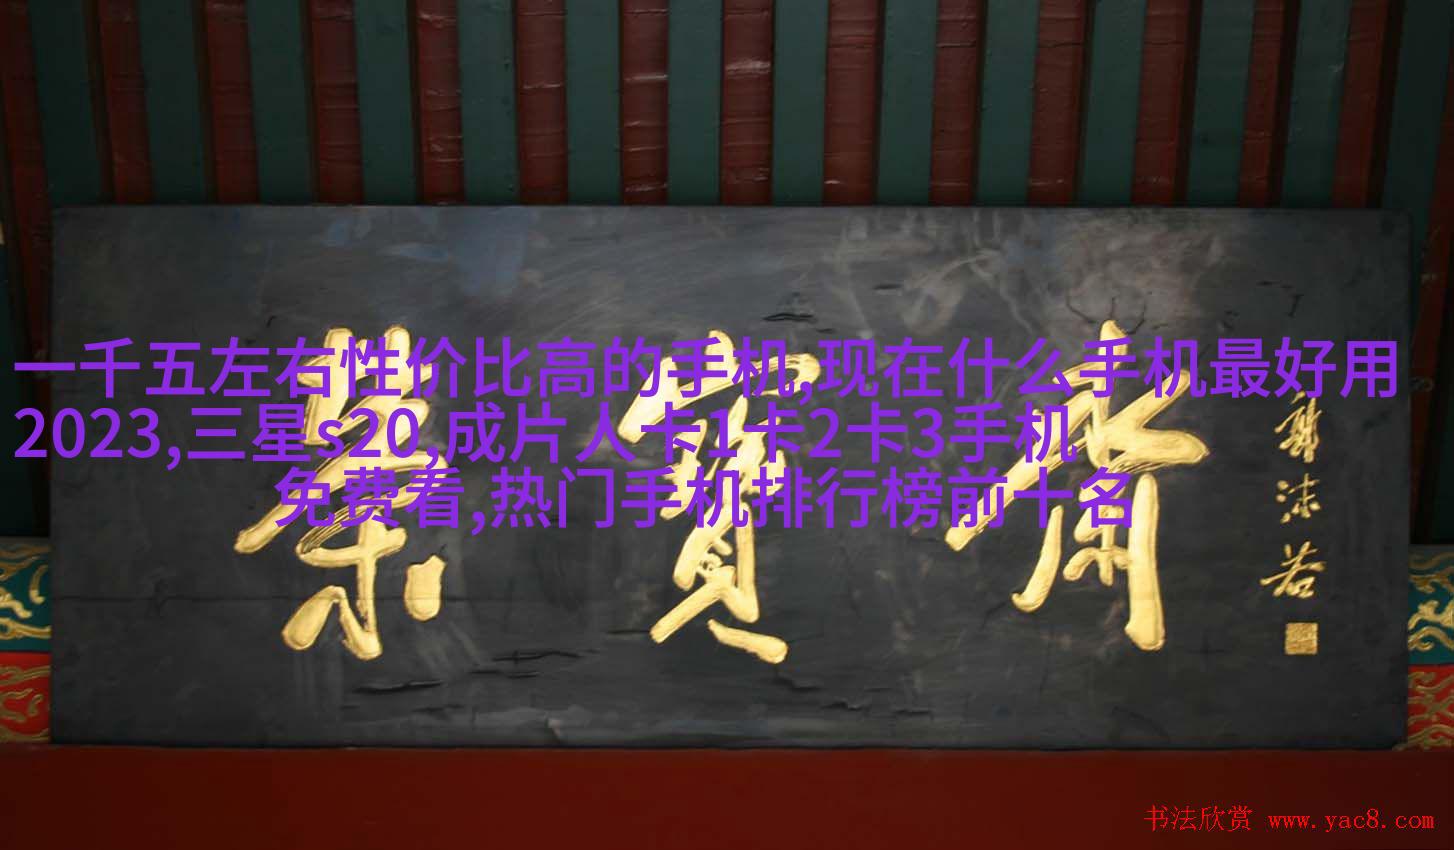 一千五左右性价比高的手机,现在什么手机最好用
2023,三星s20,成片人卡1卡2卡3手机
免费看,热门手机排行榜前十名
荣宝斋
郭沫若
书法欣赏 www.yac8.com